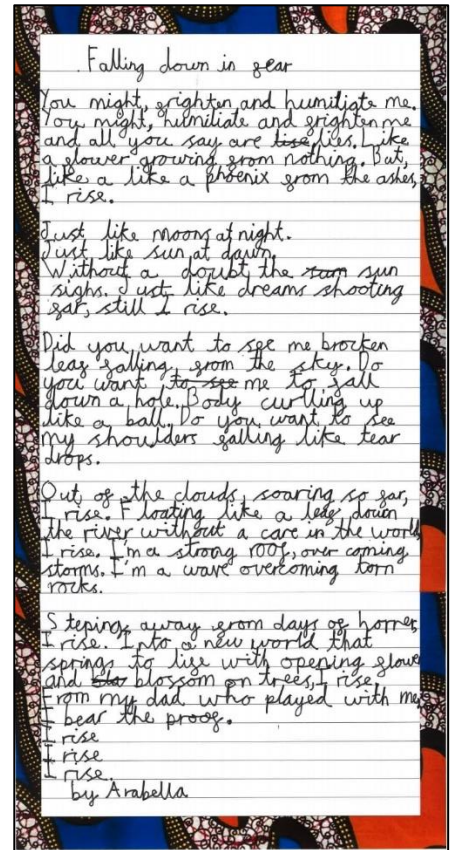 Falling down in fear
You might, frighten and humiliate me.
You might, humiliate and frighten me
and all you say are lise lies. Like
a flower growing from nothing. But,
like a like a phoenix from the ashes,
I rise.
Just like moons at night.
Just like sun at dawn.
Without a doubt the sun
sighs. Just like dreams shooting
far, still I rise.
Did you want to see me brocken
leaf falling, from the sky. Do
you want to see me to fall
down a hole. Body curlling up
like a ball. Do you want to see
my shoulders falling like tear
drops.
Out of the clouds, soaring so far,
I rise. Floating like a leaf down
the river without a care in the world
I rise. I'm a strong roof, over coming
storms. I'm a wave overcoming torn
rocks.
Steping away from days of horrer,
I rise. Into a new world that
springs to life with opening flower
and blossom on trees, I rise.
From my dad who played with me,
I bear the proof.
I rise
I rise
I rise.
by Arabella